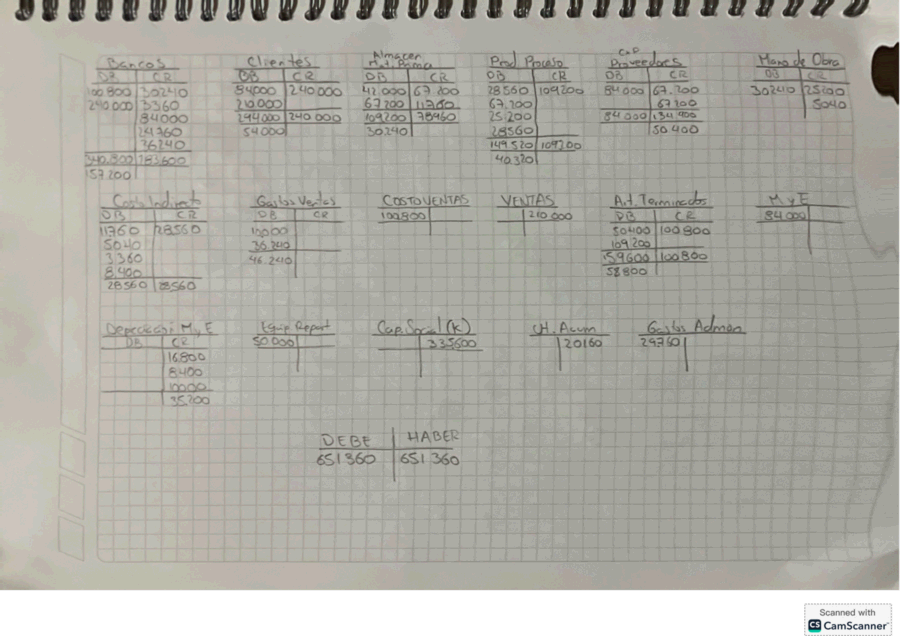 Bancos
DB CR
100 800 30240
240 000 3360
84000
24760
36240
340.800 283600
157200
Clientes
DB CR
84000 240000
210000
294000 240 000
54000
Almacen
Mat. Prima
DB CR
42000 67 200
67 200 11760
109200 78960
30240
Prod Proceso
DB CR
28560 109200
67,200
25.200
28560
149520 109200
40,320
CxP
Proveedores
DB CR
84000 67.200
67200
84000 134,400
50.400
Mano de Obra
DB CR
30240 25200
5040
Costo Indirecto
DB CR
11760 28560
5040
3360
8.400
28560 28560
Gastos Ventas
DB CR
10000
36240
46.240
COSTO VENTAS
100,800
VENTAS
210.000
Art. Terminados
DB CR
50400 100800
109200
159600 100800
58800
M y E
84000
Depreciación M y E
DB CR
16.800
8400
10000
35200
Equip Repart
50000
Cap. Social (K)
335600
Ut. Acum
20160
Gastos Admon
29760
DEBE HABER
651360 651 360
Scanned with
CS CamScanner